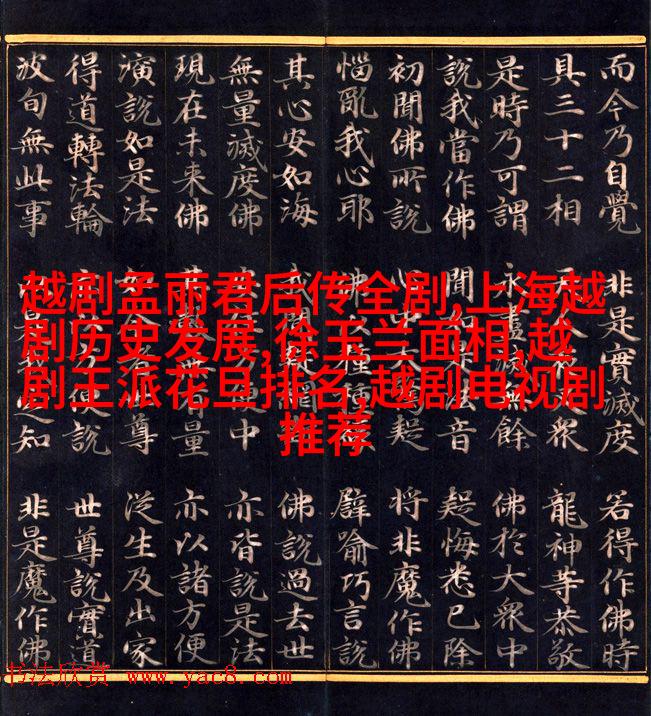 而今乃自覺 非是實滅度 若得作佛時
具三十二相 眾 龍神等恭敬
是時乃可謂 永盡滅無餘 佛於大眾中
說我當作佛 聞法音 疑悔悉已除
初聞佛所說 心中疑 將非魔作佛
惱亂我心耶 佛種 譬喻巧言說
其心安如海 佛說過去世
無量滅度佛 中 亦皆說是法
現在未來佛 量 亦以諸方便
演說如是法 尊 從生及出家
得道轉法輪 便說 世尊說實道
波旬無此事 知 非是魔作佛
越剧孟丽君后传全剧,上海越
剧历史发展,徐玉兰面相,越
剧王派花旦排名,越剧电视剧
推荐
书法欣赏 www.yac8.com